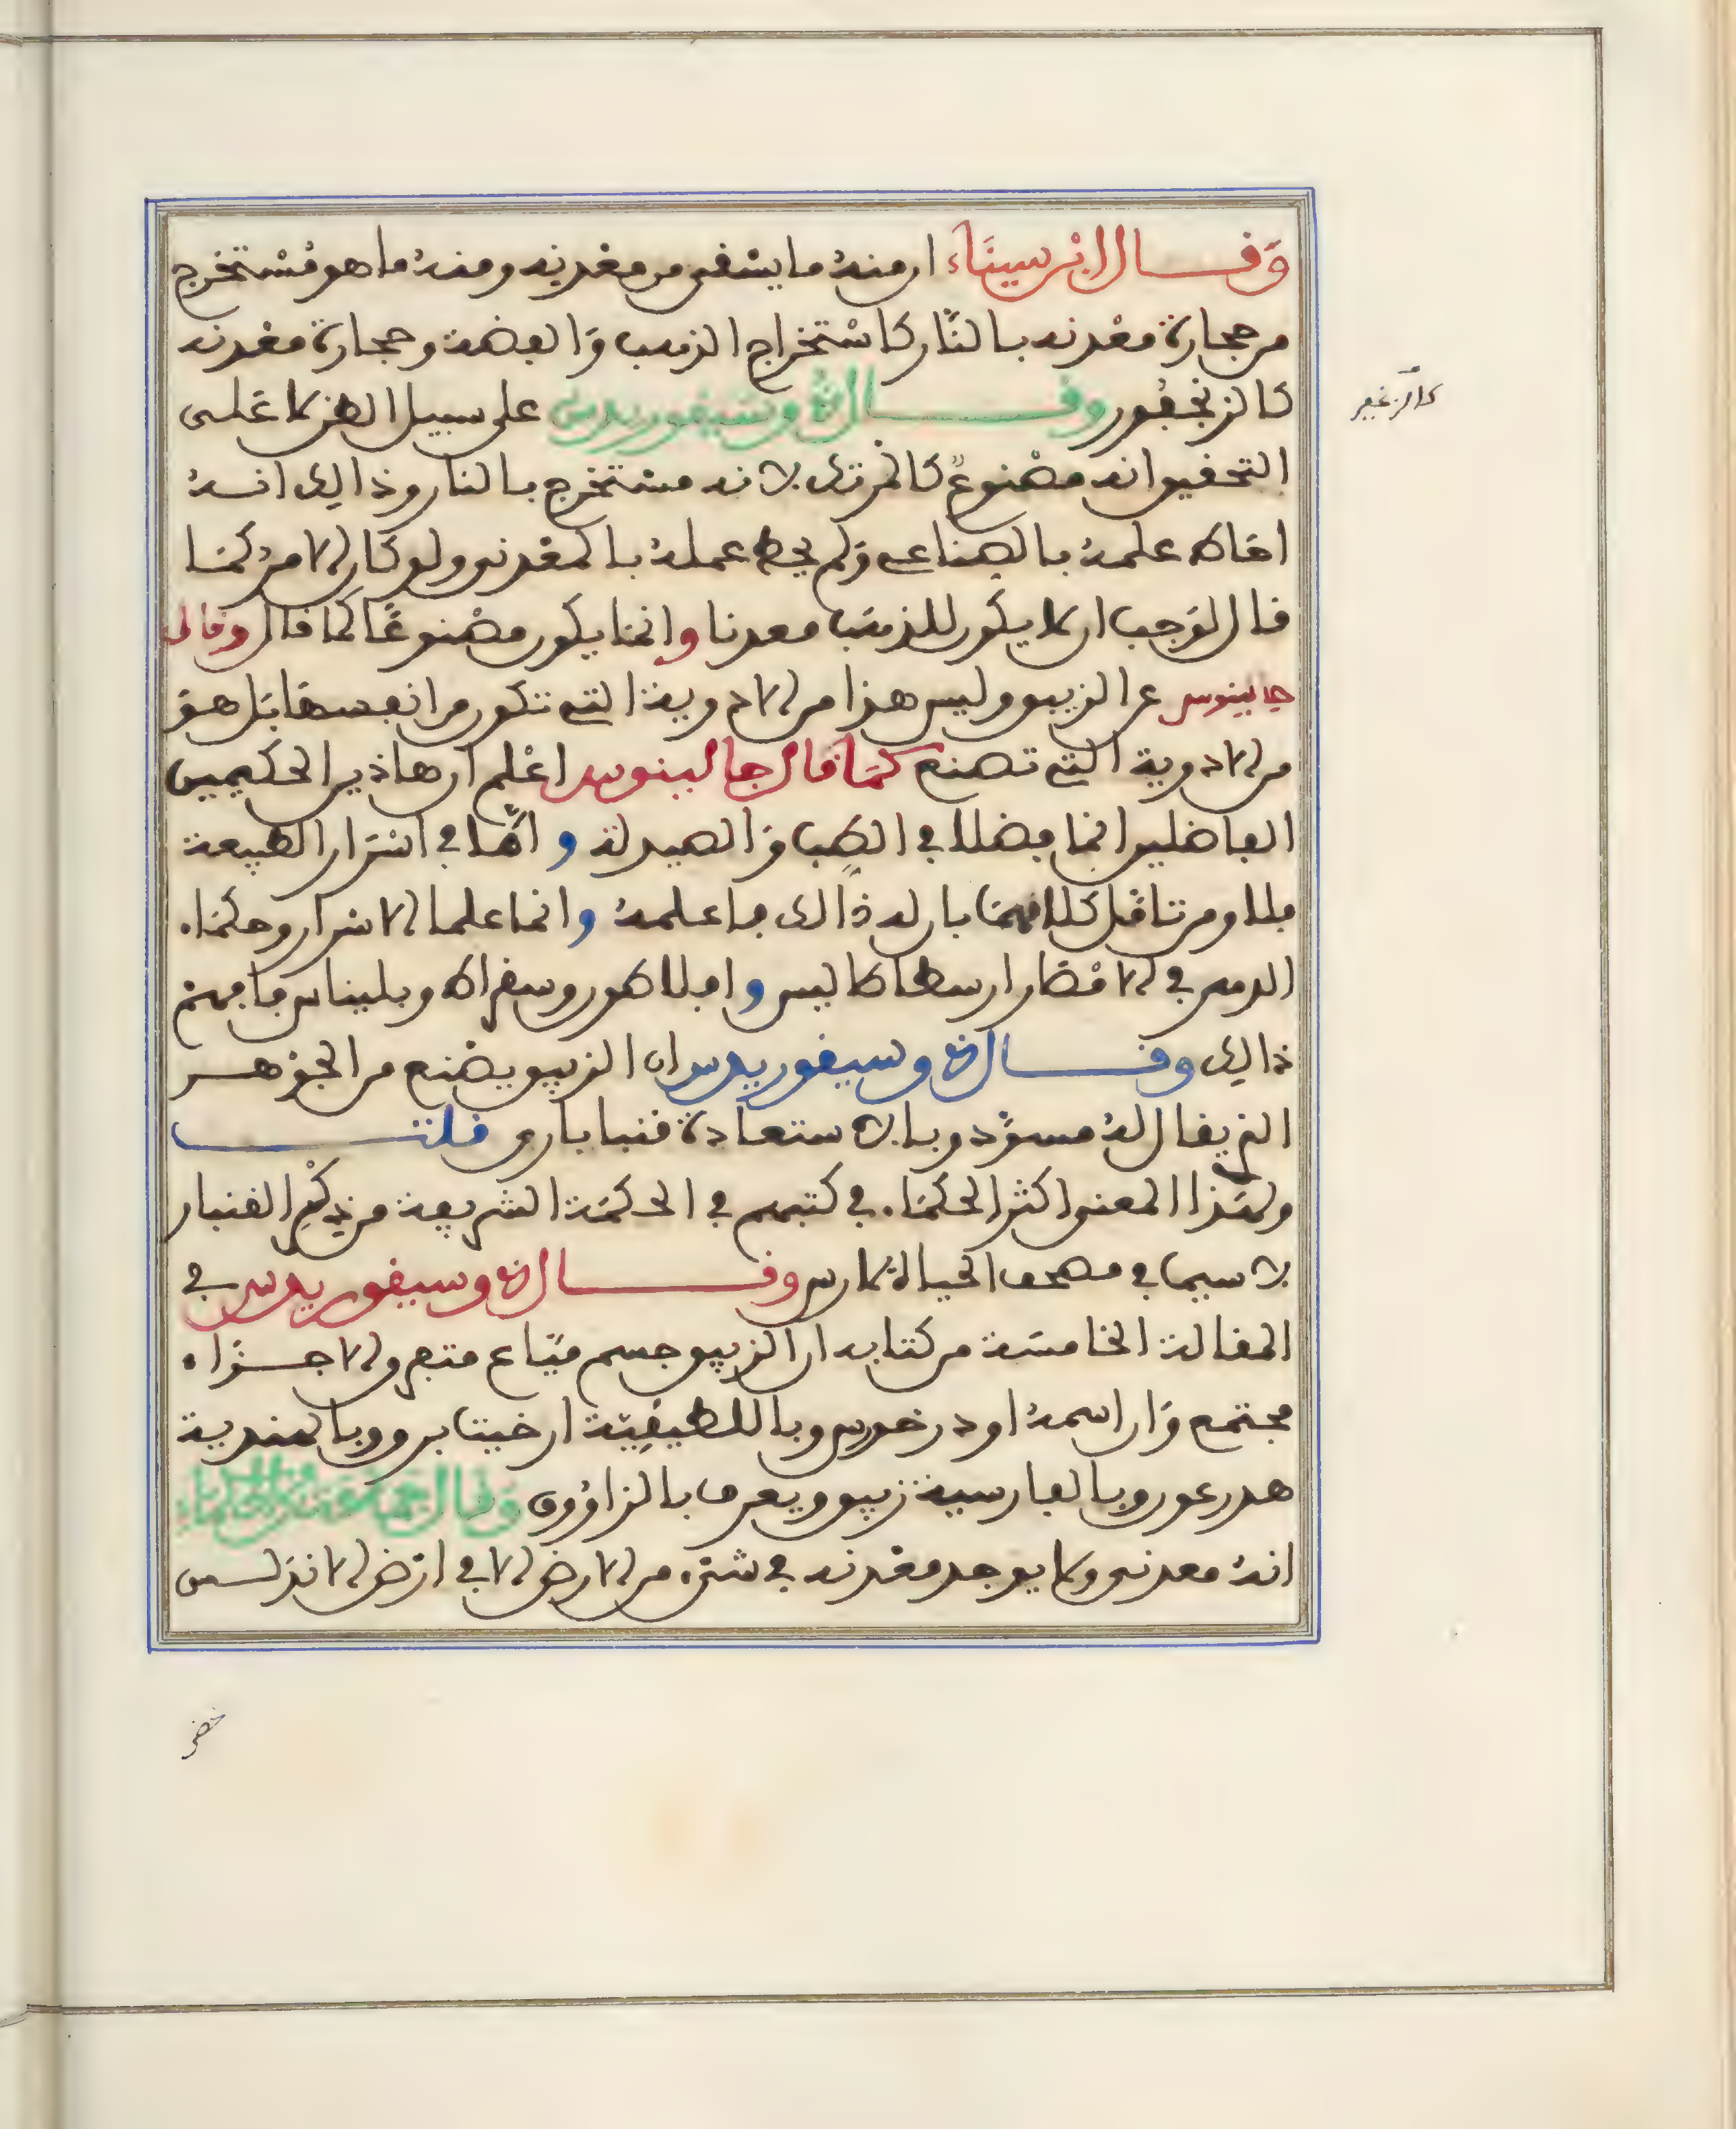 وَقال ابن سيناء ان منه ما يسقى من معدنه ومنه ما هو مستخرج
من حجارة معدنه بالنار كاستخراج الذهب وَالفضة وحجارة معدنه
كالزنجفور وقال ذوسيفوريدس على سبيل الظن لا على
التحقيق انه مصنوع كالمرتك لانه مستخرج بالنار وذالك انه
احاط علمه بالصناعي وَلم يحط عمله بالمعدني ولو كان الامر كما
قال لوَجب ان لا يكون للذهب معدنا وانما يكون مصنوعًا كما قال وقال
جالينوس عن الزيبق وليس هذا من الادوية التي تتكون من انفسها بَل هو
من الادوية التي تصنع كمَا قال جالينوس اعلم ان هاذين الحكيمين
الفاضلين انما فضلا في الطب وَالصيدلة و امّا في اسرَار الطبيعة
فلا ومن تامّل كلامهمَا بان له ذالك فاعلمه وانما علما الاسرار وحكماء
الدهر في الامصَار ارسطاطاليس و افلاطون وسقراط وبليناس فافهم
ذالك وقال ذوسيفوريدس ان الزيبق يصنع من الجوهر
الذي يقال له مسوّد وبالاستعادة قنباباري قلت
ولهَذا المعنى اكثر الحكمَاء في كتبهم في الحكمَة الشريفة من ذِكْرِ القنبار
لاسيما في مصحف الحياة لمارس وقال ذوسيفوريدس في
المقالة الخامسَة من كتابه ان الزيبق جسم ميَّاع متفرق الاجزاء
مجتمع وَان اسمه اودرخرس وباللطيقِيّة ارخيتا برو وبالهندية
هدرعور وبالفارسية زيبق ويعرف بالزاؤوق وقال جمَاعَة من الحكماء
انه معدني ولا يوجد معدنه في شيء من الارض الا في ارض الاندلس
كالزنجفر